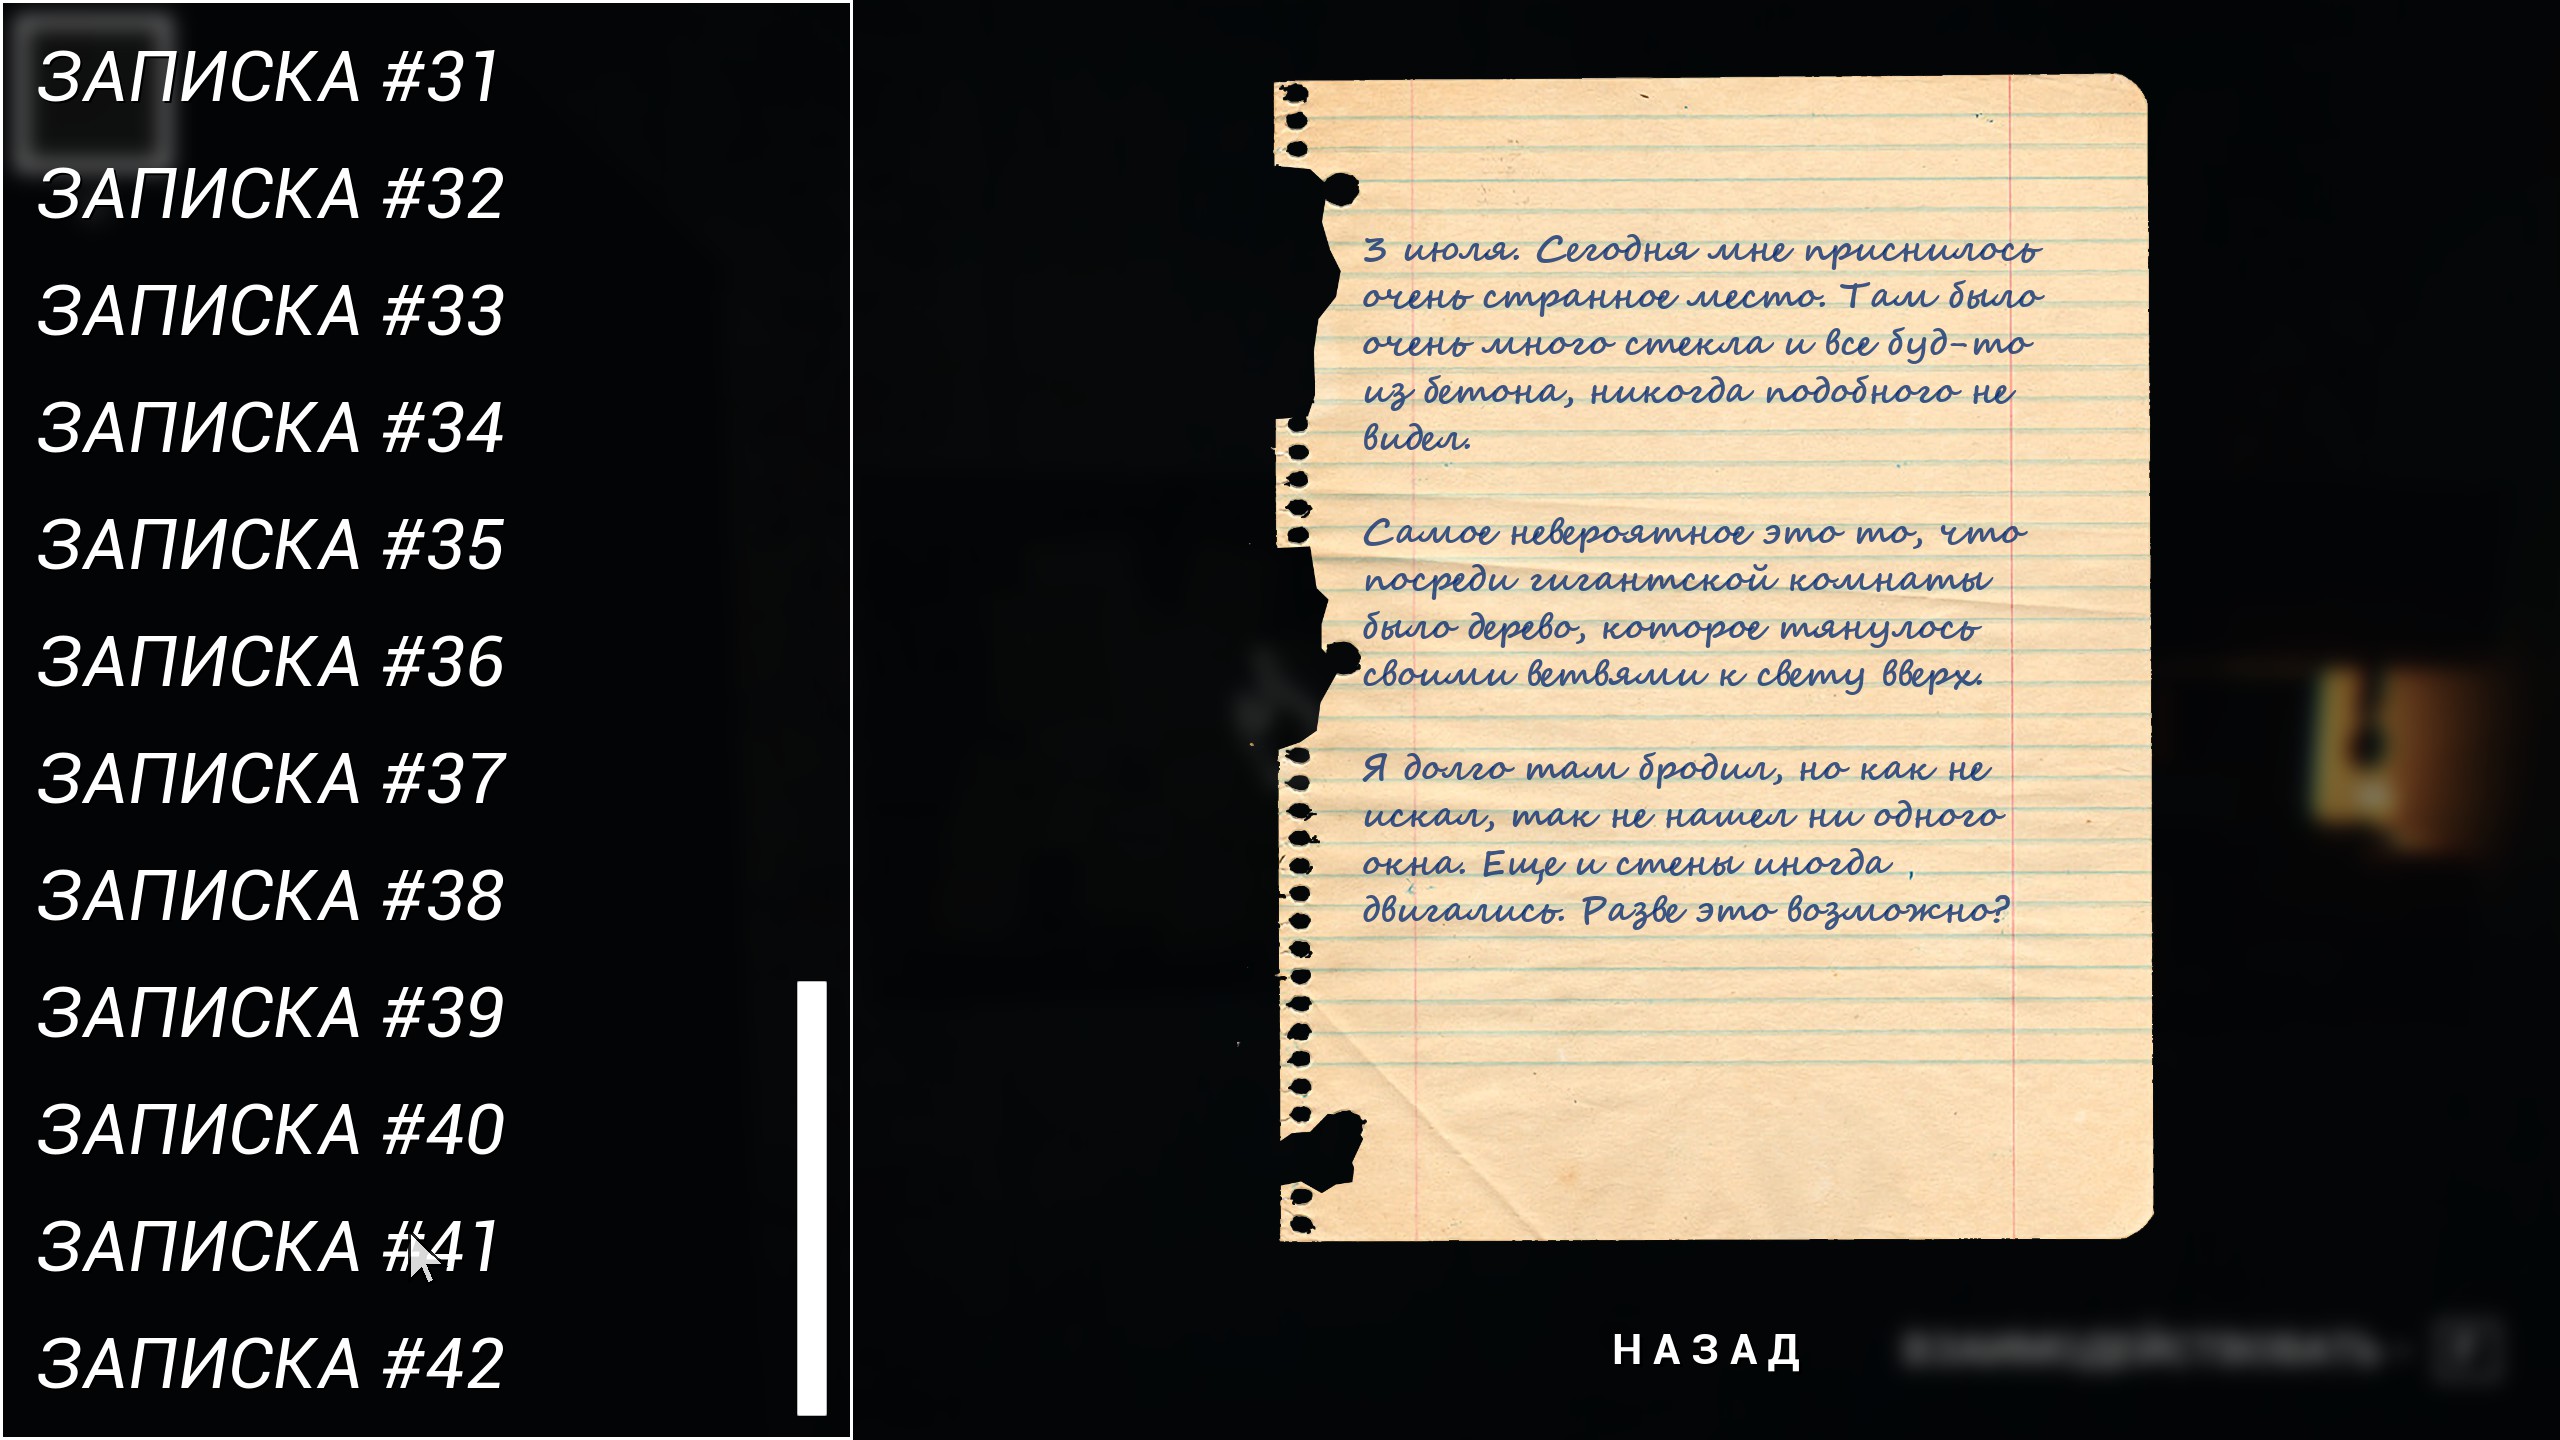 ЗАПИСКА #31
ЗАПИСКА #32
ЗАПИСКА #33
ЗАПИСКА #34
ЗАПИСКА #35
ЗАПИСКА #36
ЗАПИСКА #37
ЗАПИСКА #38
ЗАПИСКА #39
ЗАПИСКА #40
ЗАПИСКА #41
ЗАПИСКА #42
3 июля. Сегодня мне приснилось
очень странное место. Там было
очень много стекла и все буд-то
из бетона, никогда подобного не
видел.
Самое невероятное это то, что
посреди гигантской комнаты
было дерево, которое тянулось
своими ветвями к свету вверх.
Я долго там бродил, но как не
искал, так не нашел ни одного
окна. Еще и стены иногда
двигались. Разве это возможно?
НАЗАД
ВЗАИМОДЕЙСТВОВАТЬ -